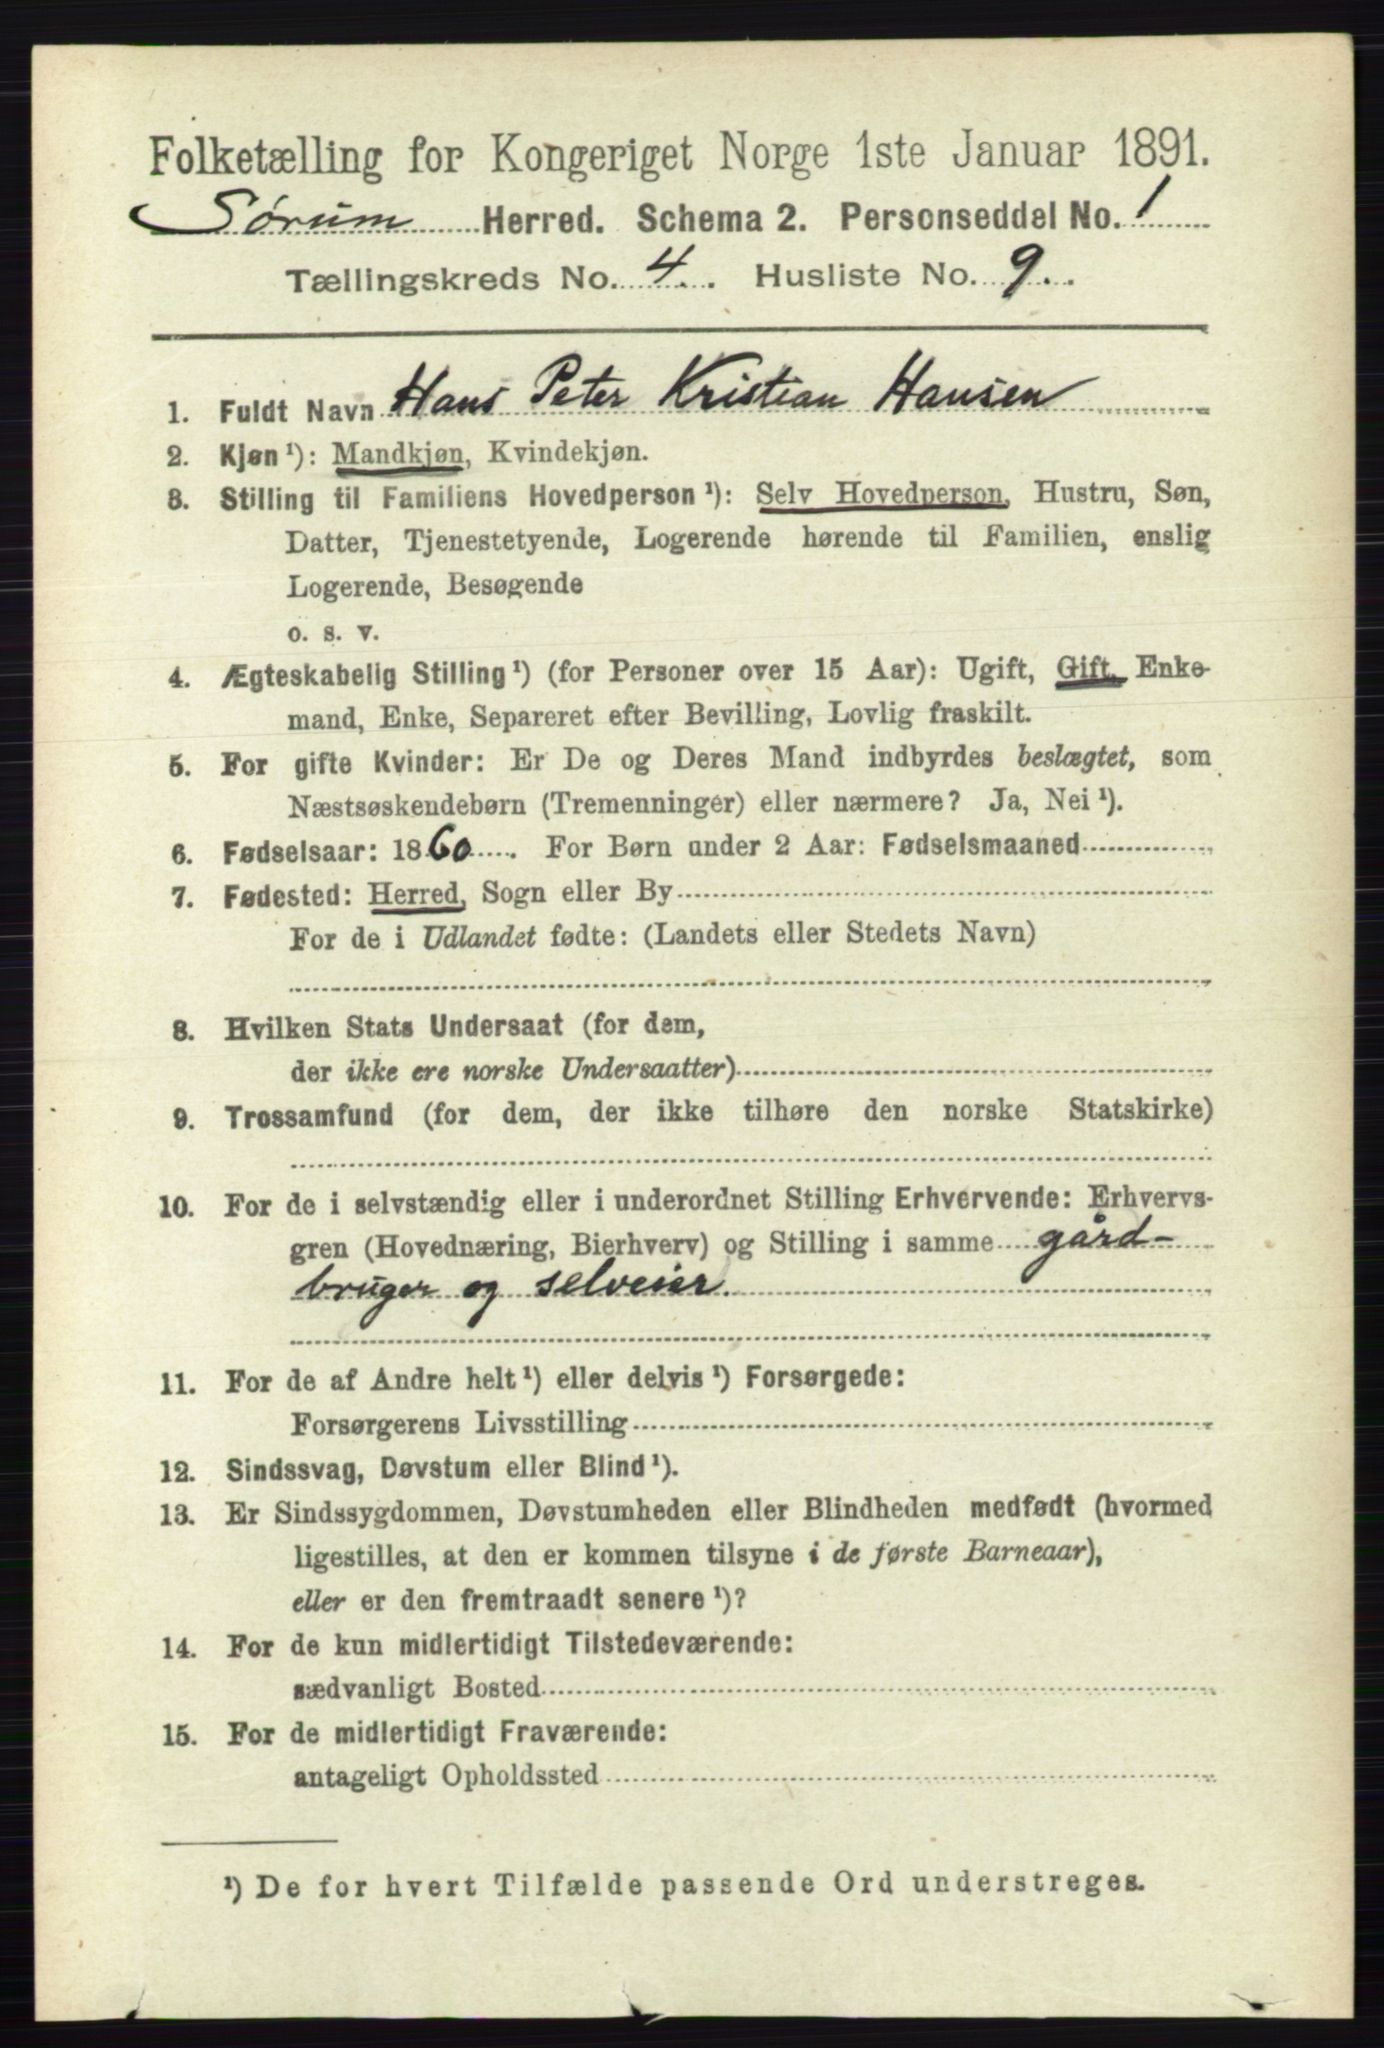 Folketælling for Kongeriget Norge 1ste Januar 1891.
Sørum Herred. Schema 2. Personseddel No. 1
Tællingskreds No. 4. Husliste No. 9.
1. Fuldt Navn Hans Peter Kristian Hansen
2. Kjøn ¹): Mandkjøn, Kvindekjøn.
3. Stilling til Familiens Hovedperson ¹): Selv Hovedperson, Hustru, Søn,
Datter, Tjenestetyende, Logerende hørende til Familien, enslig
Logerende, Besøgende
o. s. v.
4. Ægteskabelig Stilling ¹) (for Personer over 15 Aar): Ugift, Gift, Enke-
mand, Enke, Separeret efter Bevilling, Lovlig fraskilt.
5. For gifte Kvinder: Er De og Deres Mand indbyrdes beslægtet, som
Næstsøskendebørn (Tremenninger) eller nærmere? Ja, Nei ¹).
6. Fødselsaar: 1860. For Børn under 2 Aar: Fødselsmaaned
7. Fødested: Herred, Sogn eller By
For de i Udlandet fødte: (Landets eller Stedets Navn)
8. Hvilken Stats Undersaat (for dem,
der ikke ere norske Undersaatter)
9. Trossamfund (for dem, der ikke tilhøre den norske Statskirke)
10. For de i selvstændig eller i underordnet Stilling Erhvervende: Erhvervs-
gren (Hovednæring, Bierhverv) og Stilling i samme gård-
bruger og selveier.
11. For de af Andre helt ¹) eller delvis ¹) Forsørgede:
Forsørgerens Livsstilling
12. Sindssvag, Døvstum eller Blind ¹).
13. Er Sindssygdommen, Døvstumheden eller Blindheden medfødt (hvormed
ligestilles, at den er kommen tilsyne i de første Barneaar),
eller er den fremtraadt senere ¹)?
14. For de kun midlertidigt Tilstedeværende:
sædvanligt Bosted
15. For de midlertidigt Fraværende:
antageligt Opholdssted
¹) De for hvert Tilfælde passende Ord understreges.